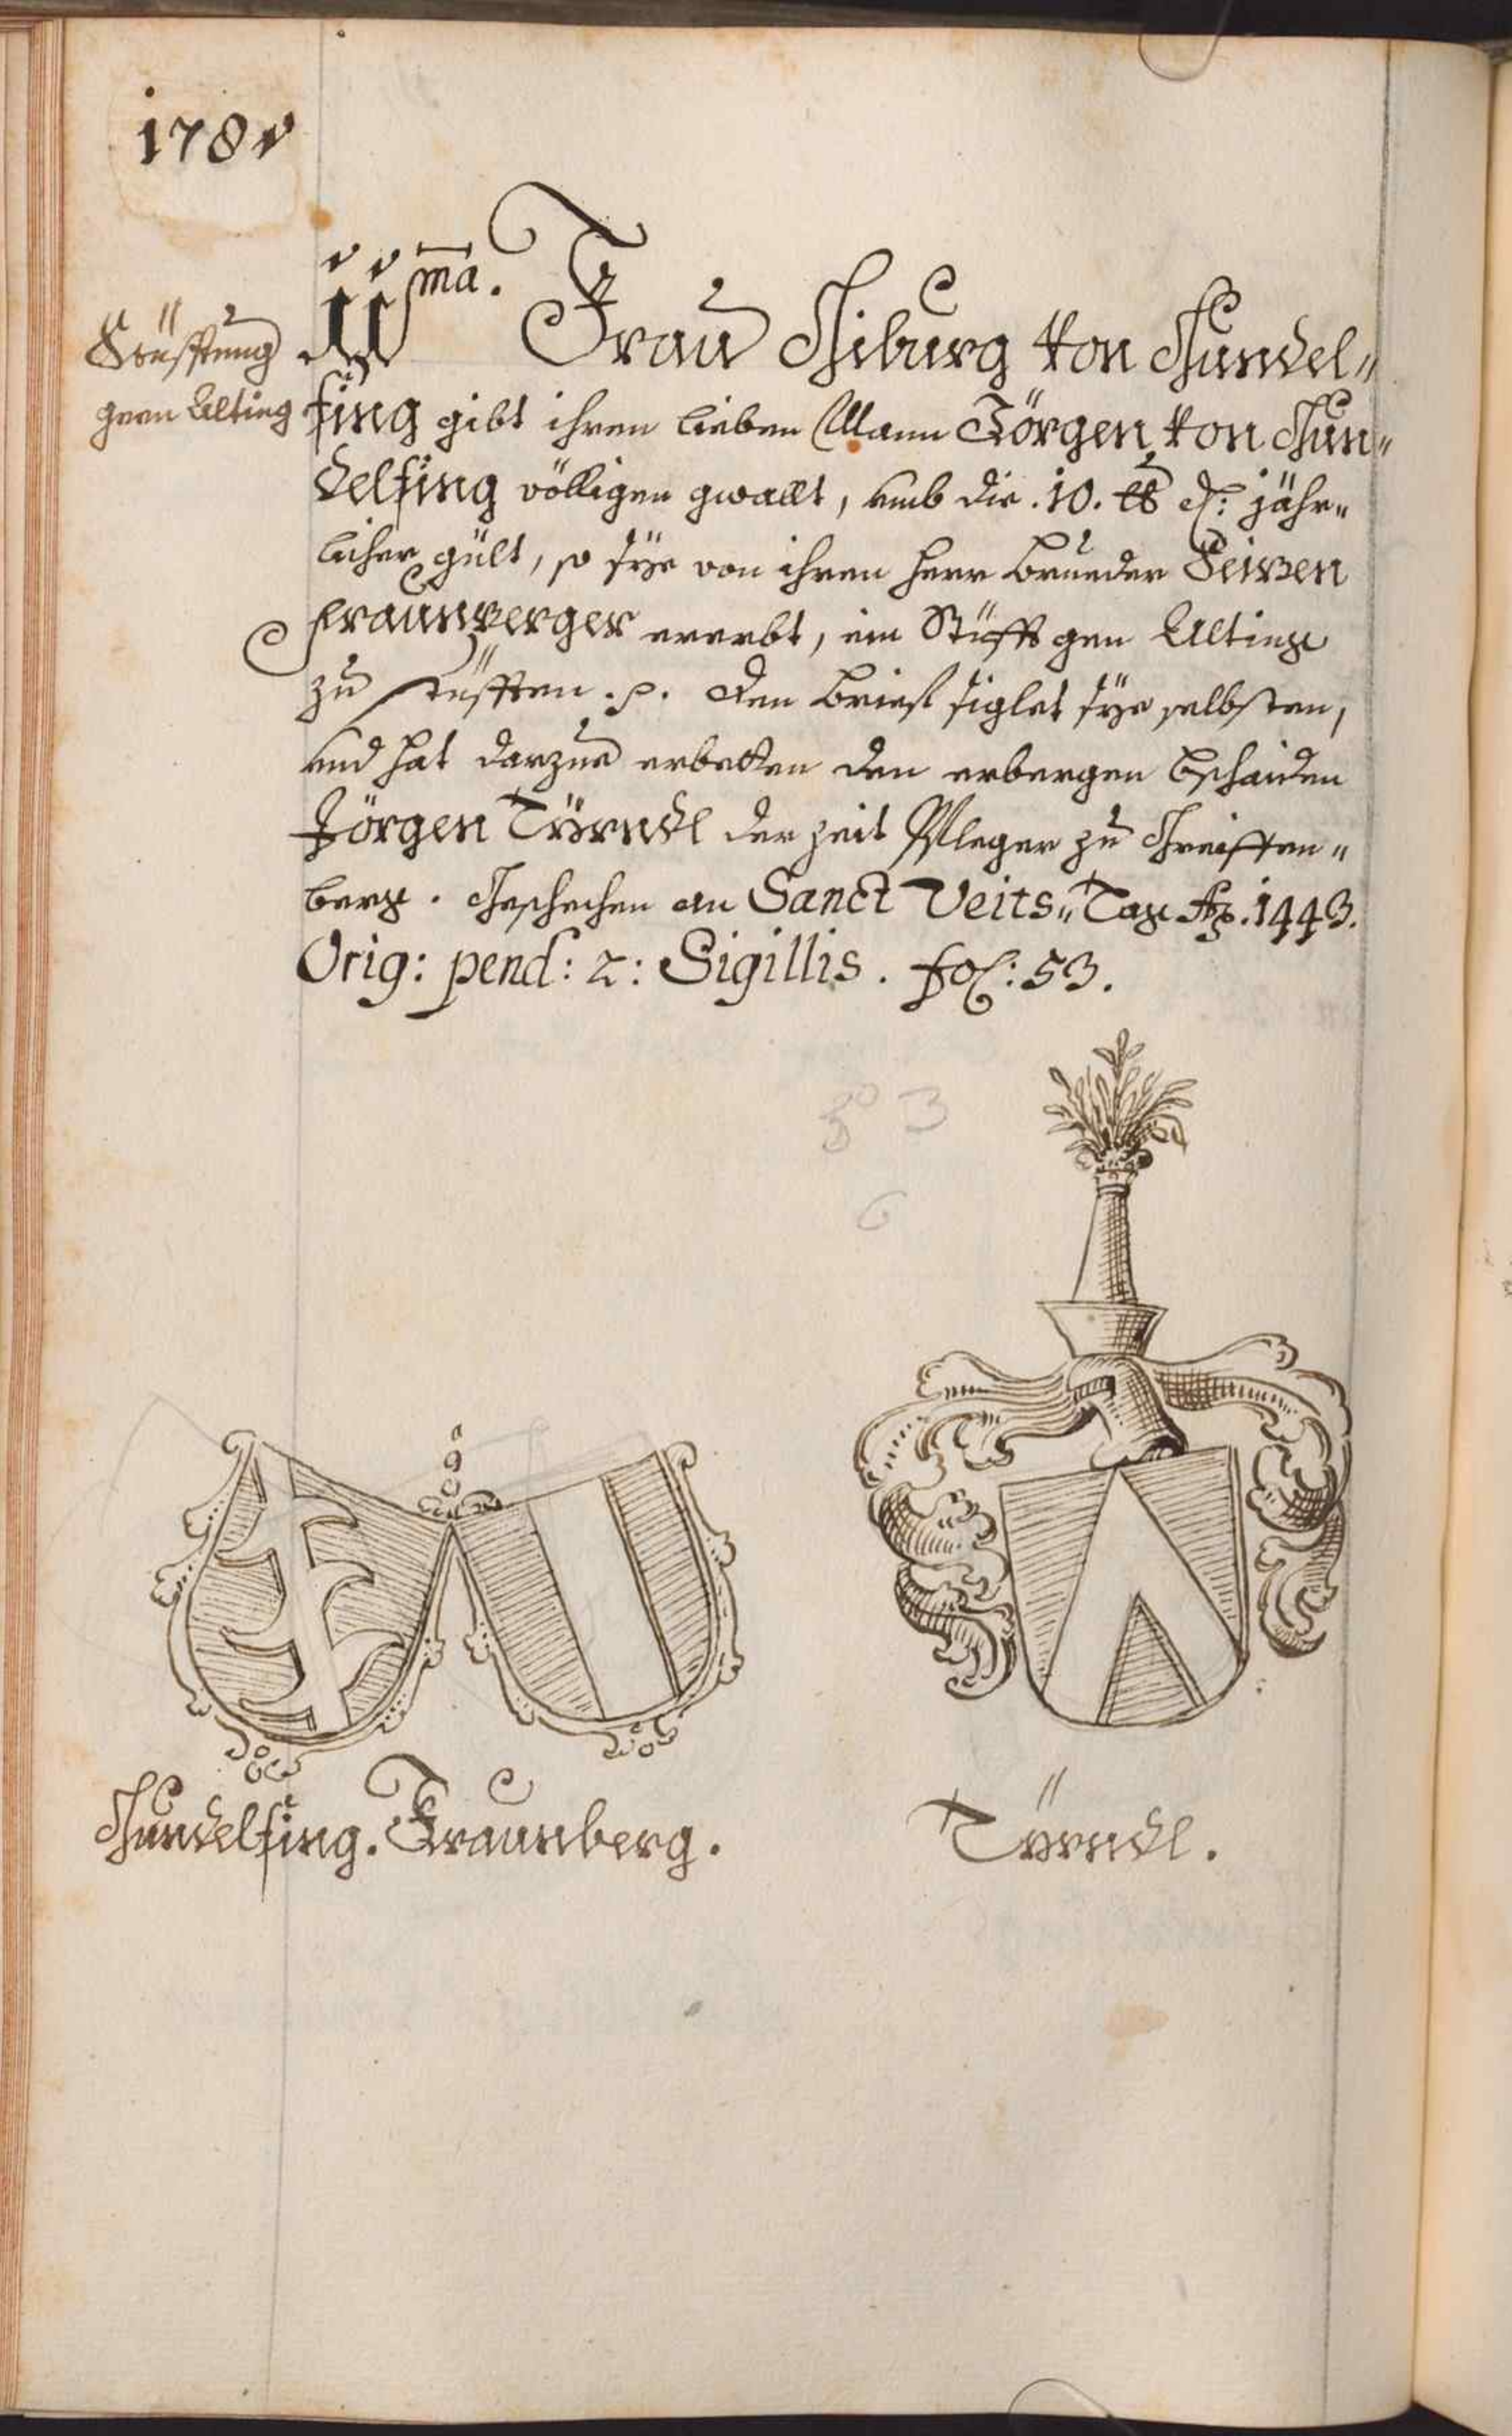 178v
Stüfftung
gern Alting
IIma. Frau Hiburg von Gundel„
fing gibt ihren lieben Mann Görgen von Gun„
delfing völligen gwallt, umb die .10. ℔ ₰: jähr„
licher gült, so sÿe von ihren Herr Brueder
Fraunberger ererbt, ein Stüfft gen Alting
zu stüfften .p. den Brief siglet sÿe selbsten,
und hat darzue erbetten den erbergen bschaiden
Jörgen Türndl der Zeit Pfleger zu Greiffen„
berg. Geschechen an Sanct Veits„ Tag Ao. 1443.
Orig: pend: 2: Sigillis. fol: 53.
Gundelfing. Fraunberg.
Türndl.